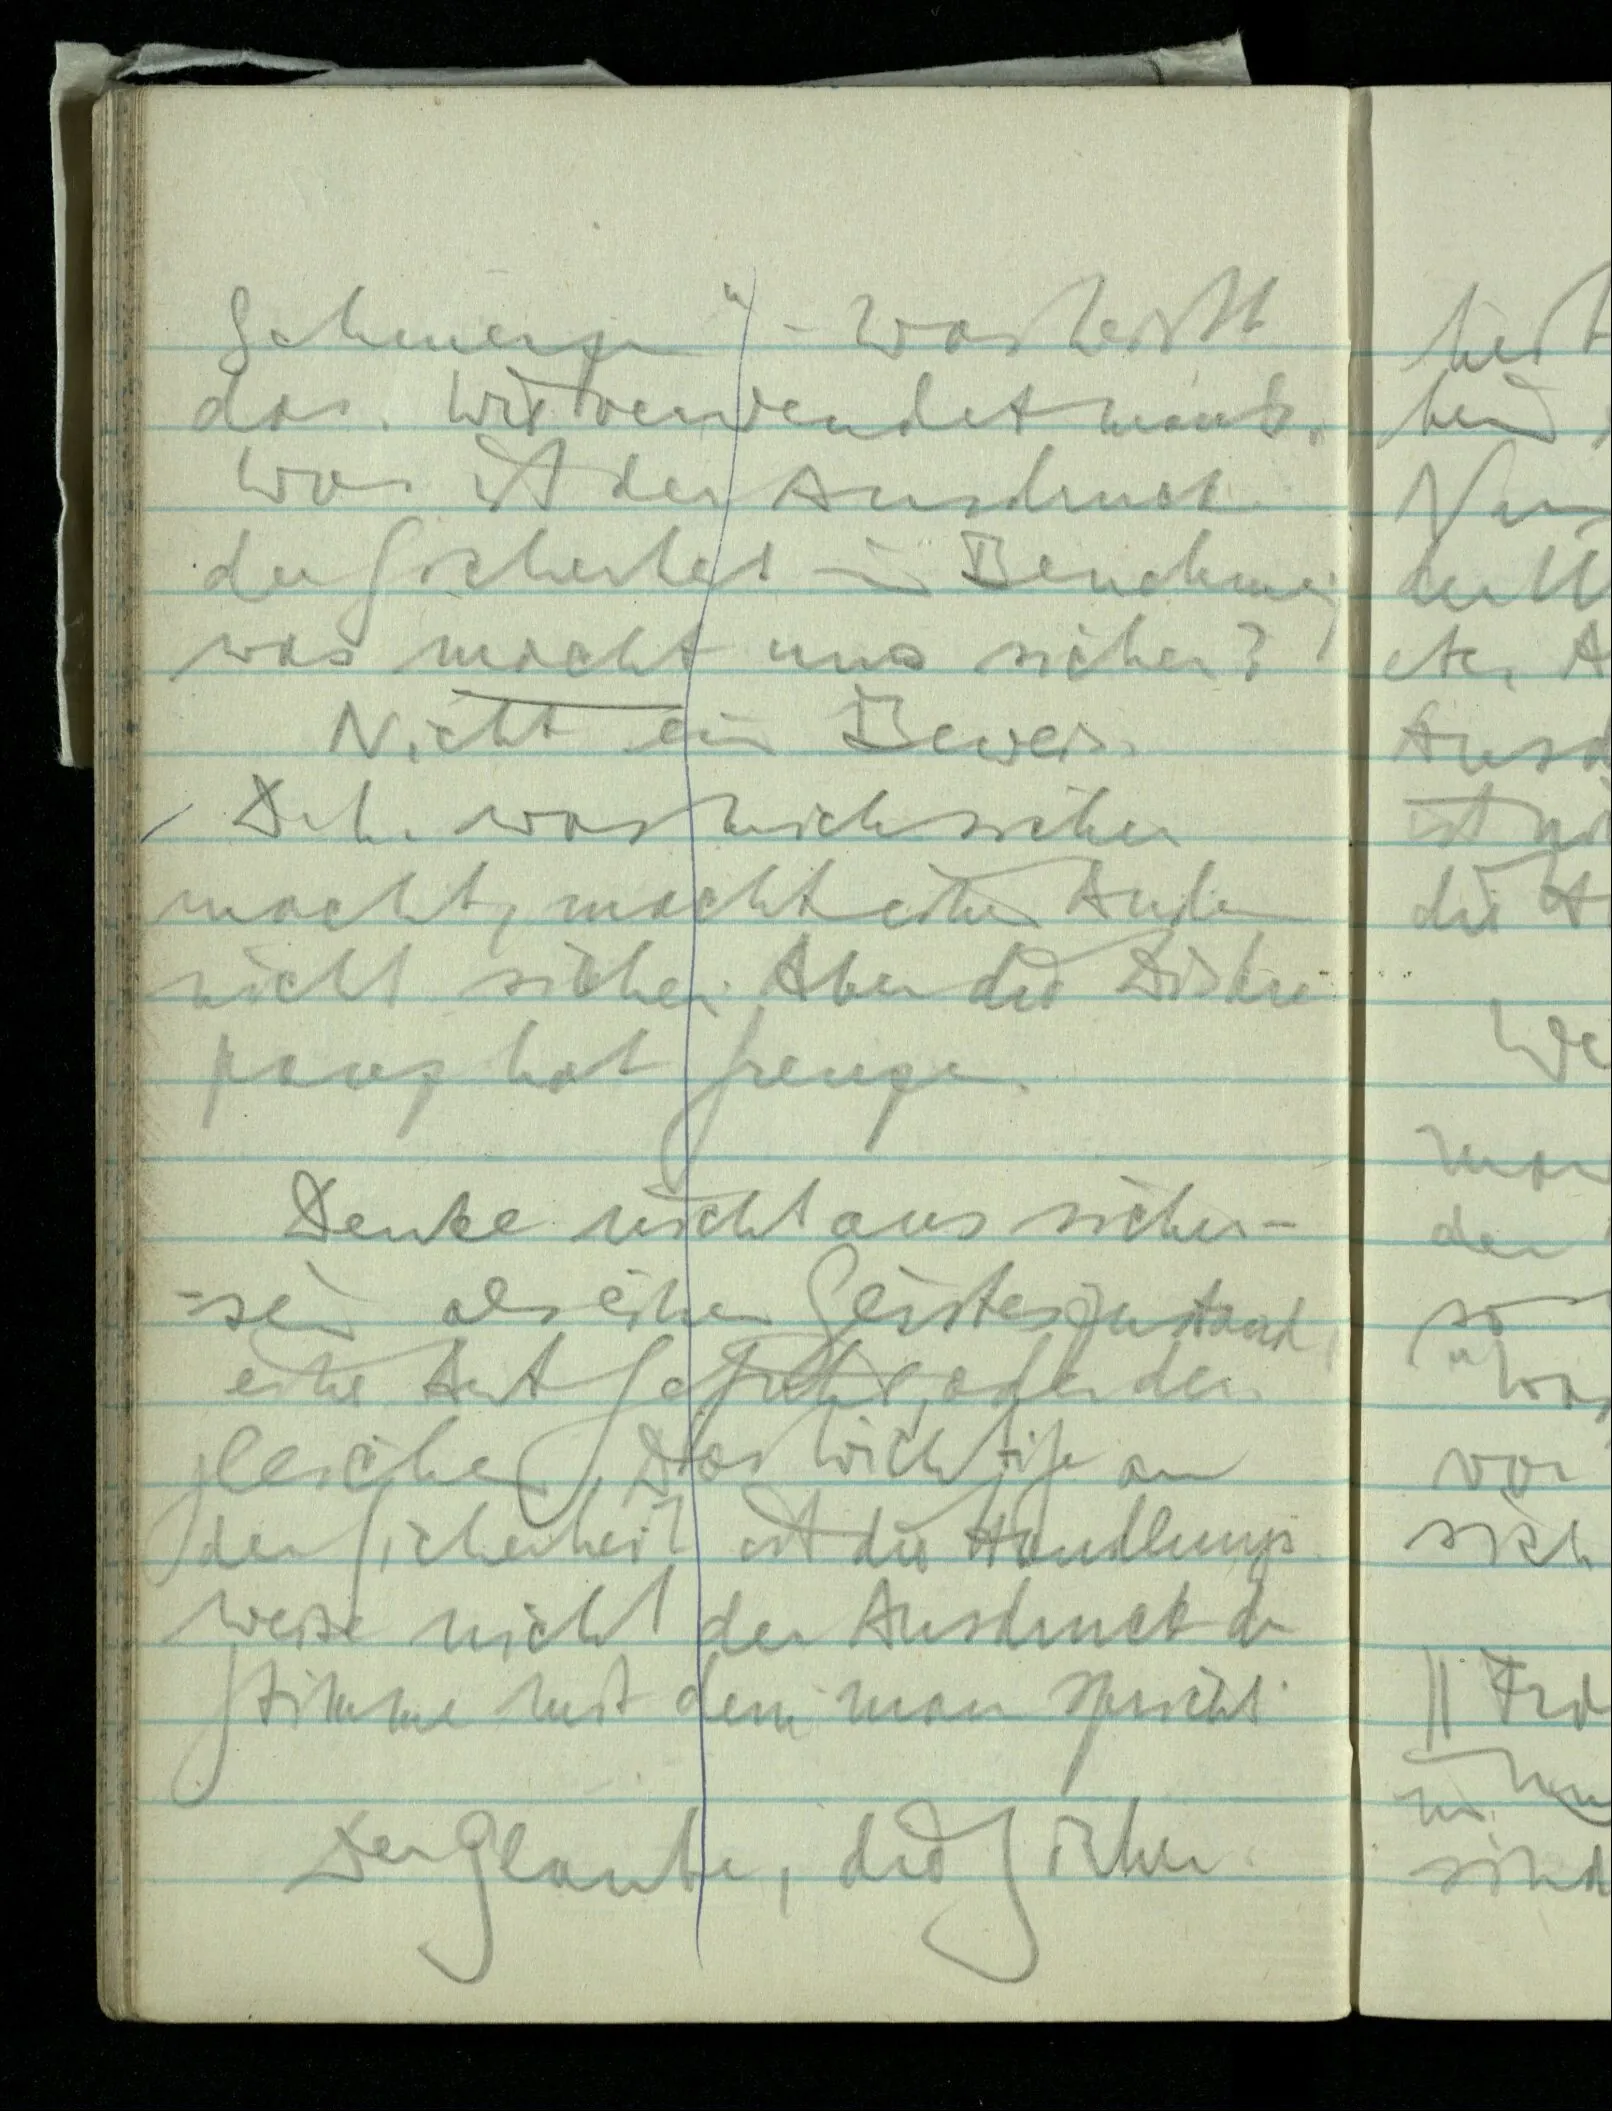 Schmerzen" – Was heißt
das. Wie verwendet man's.
Was ist der Ausdruck
der Sicherheit im Benehmen
was macht uns sicher?
Nicht ein Beweis.
D.h. was mich sicher
macht, macht einen Andern
nicht sicher. Aber die Diskre
panz hat Grenzen.
Denke nicht ans sicher-
-sein als einen Geisteszustand,
eine Art Gefühl, oder der
gleichen. Das Wichtige an
der Sicherheit ist die Handlungs
weise nicht der Ausdruck der
Stimme mit dem man spricht
Der Glaube, die Sicher
heißt
Nun
ist
die
den
so
vor
sich